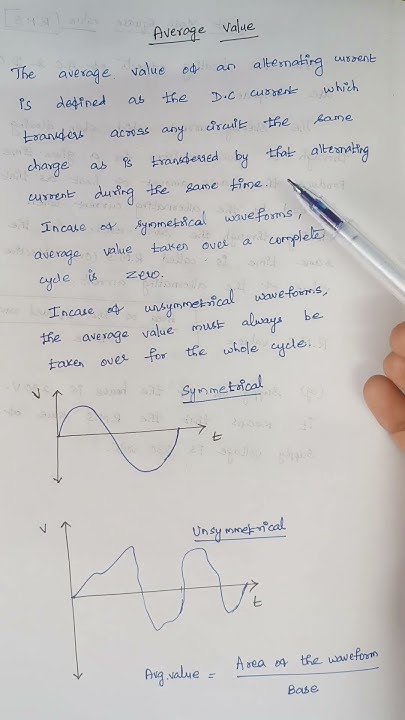 Average Value
The average value of an alternating current
is defined as the D.C current which
transfers across any circuit the same
charge as is transferred by that alternating
current during the same time.
Incase of symmetrical waveforms,
average value taken over a complete
cycle is zero.
Incase of unsymmetrical waveforms,
the average value must always be
taken over for the whole cycle.
Symmetrical
V
t
Unsymmetrical
V
t
Avg.value = Area of the waveform
Base